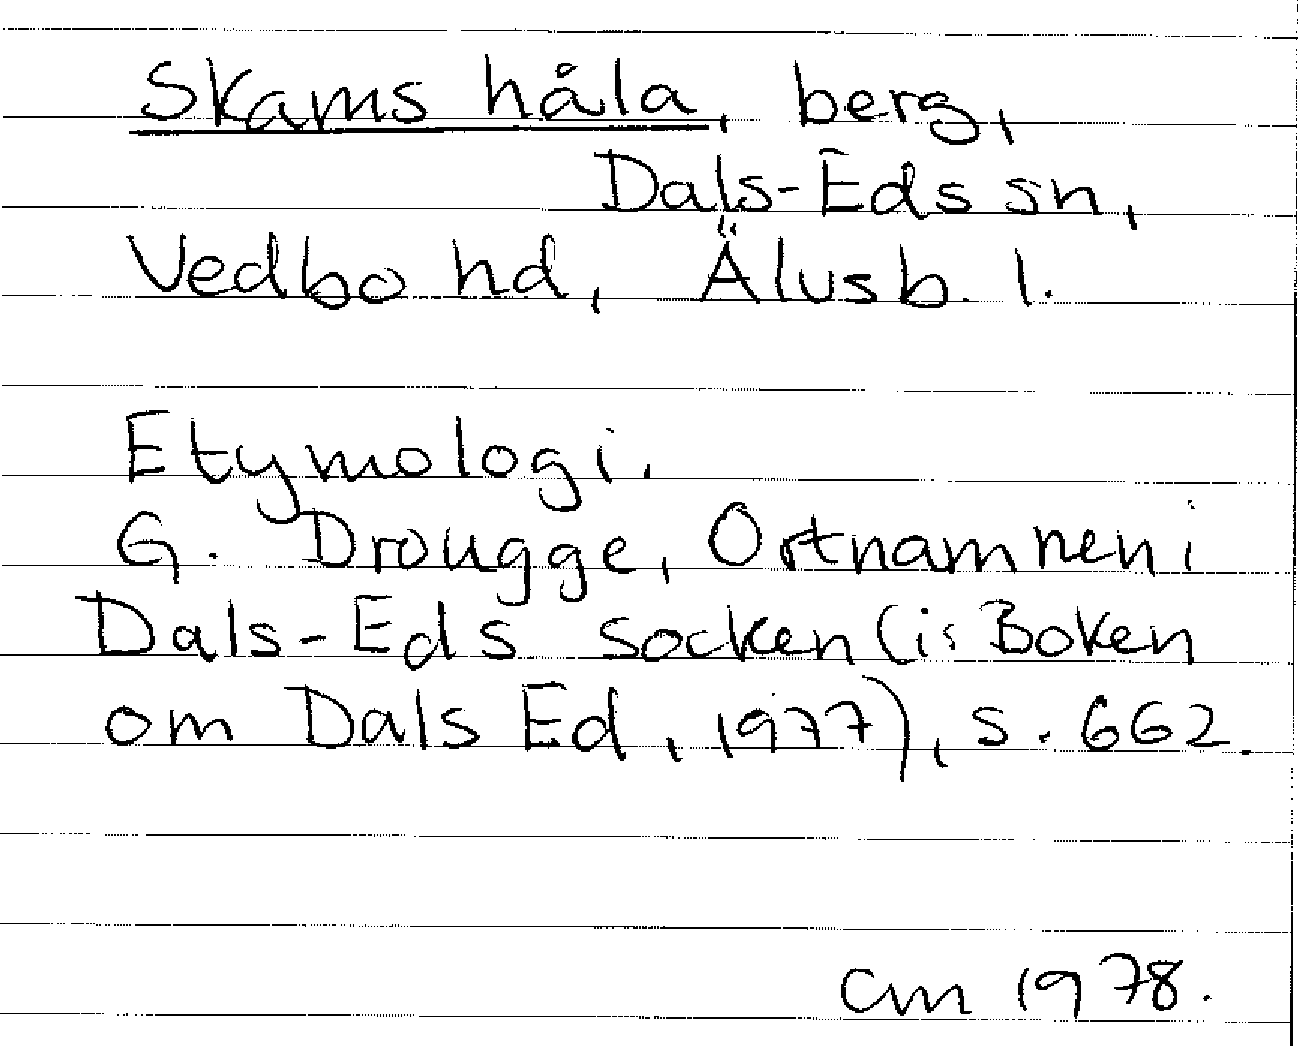 Skams håla, berg,
Dals-Eds sn,
Vedbo hd, Älvsb. l.
Etymologi.
G. Drougge, Ortnamnen i
Dals-Eds socken (i: Boken
om Dals Ed, 1977), s. 662.
CM 1978.